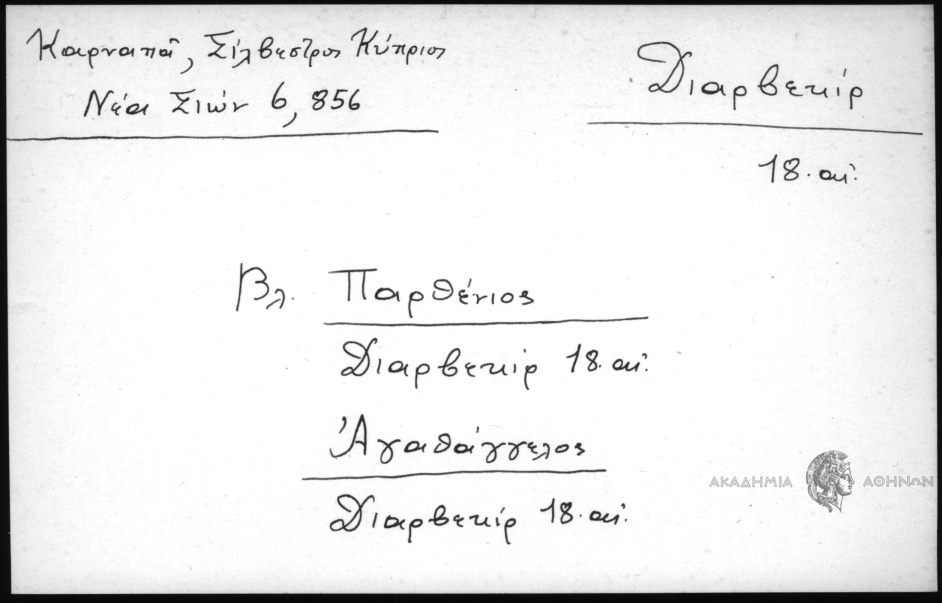 Καρναπᾶ, Σίλβεστρος Κύπριος
Νέα Σιών 6, 856
Διαρβεκίρ
18. αἰ.
Βλ. Παρθένιος
Διαρβεκίρ 18. αἰ.
Ἀγαθάγγελος
Διαρβεκίρ 18. αἰ.
ΑΚΑΔΗΜΙΑ ΑΘΗΝΩΝ